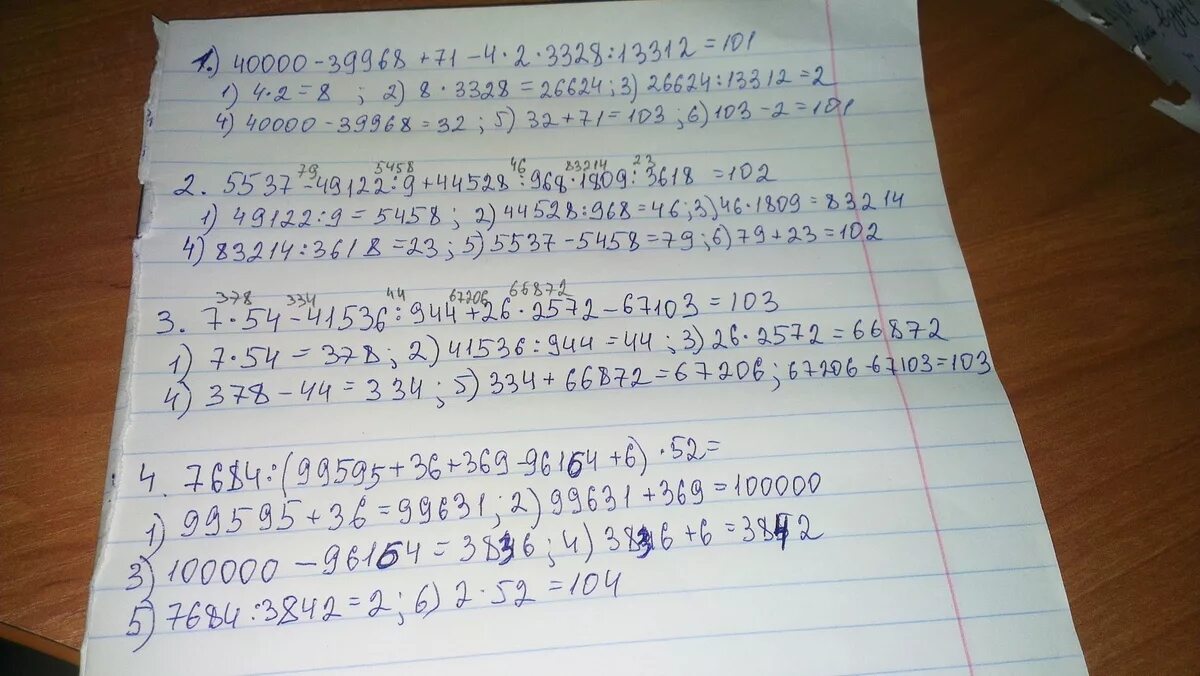 1.) 40000-39968+71-4·2·3328:13312=101
1) 4·2=8 ; 2) 8·3328=26624; 3) 26624:13312=2
4) 40000-39968=32; 5) 32+71=103; 6) 103-2=101
79 5458 46 83214 23
2. 5537-49122:9+44528:968·1809:3618=102
1) 49122:9=5458; 2) 44528:968=46; 3) 46·1809=83214
4) 83214:3618=23; 5) 5537-5458=79; 6) 79+23=102
378 334 44 67206 66872
3. 7·54-41536:944+26·2572-67103=103
1) 7·54=378; 2) 41536:944=44; 3) 26·2572=66872
4) 378-44=334; 5) 334+66872=67206; 67206-67103=103
4. 7684:(99595+36+369-96164+6)·52=
1) 99595+36=99631; 2) 99631+369=100000
3) 100000-96164=3836; 4) 3836+6=3842
5) 7684:3842=2; 6) 2·52=104